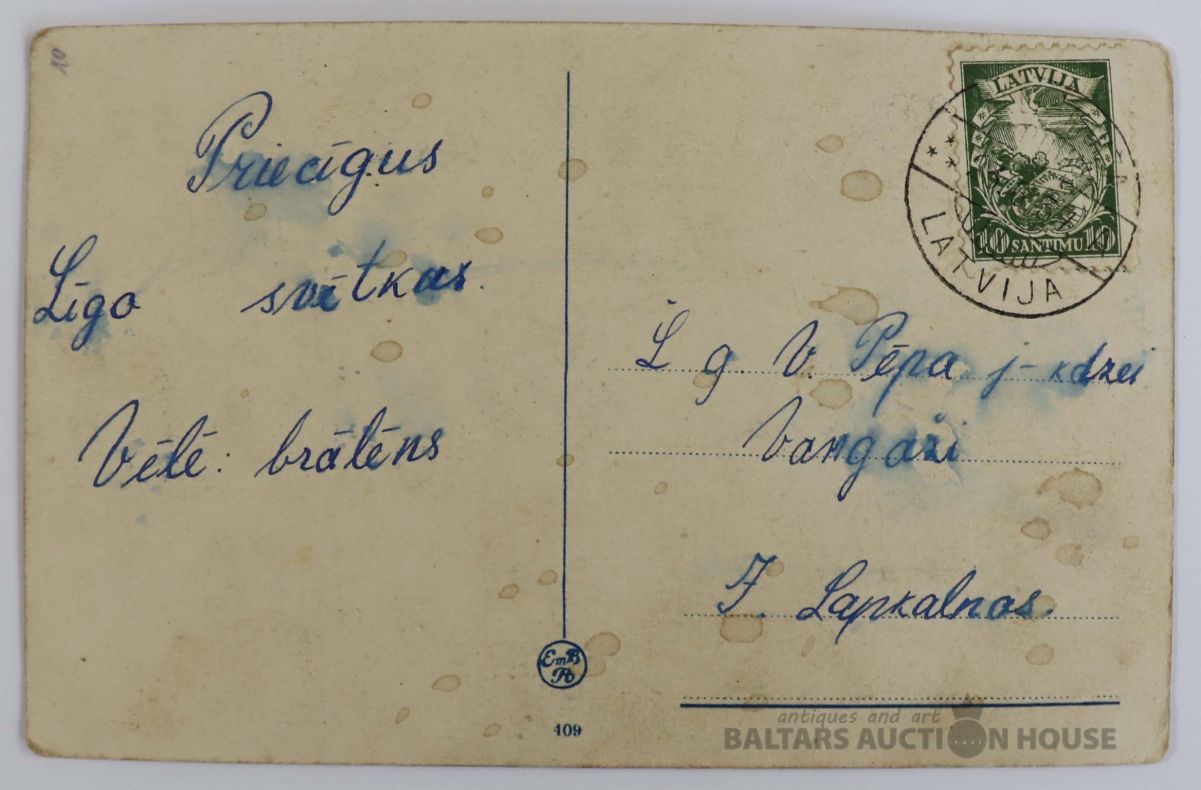 10
Priecīgus
Līgo svētkus.
Vēlē: brālēns
LATVIJA
10 SANTIMU 10
LATVIJA
L g. V. Pēpa j-kdzei
Vangaži
J. Lapkalnos.
EmB
R
409
antiques and art
BALTARS AUCTION HOUSE